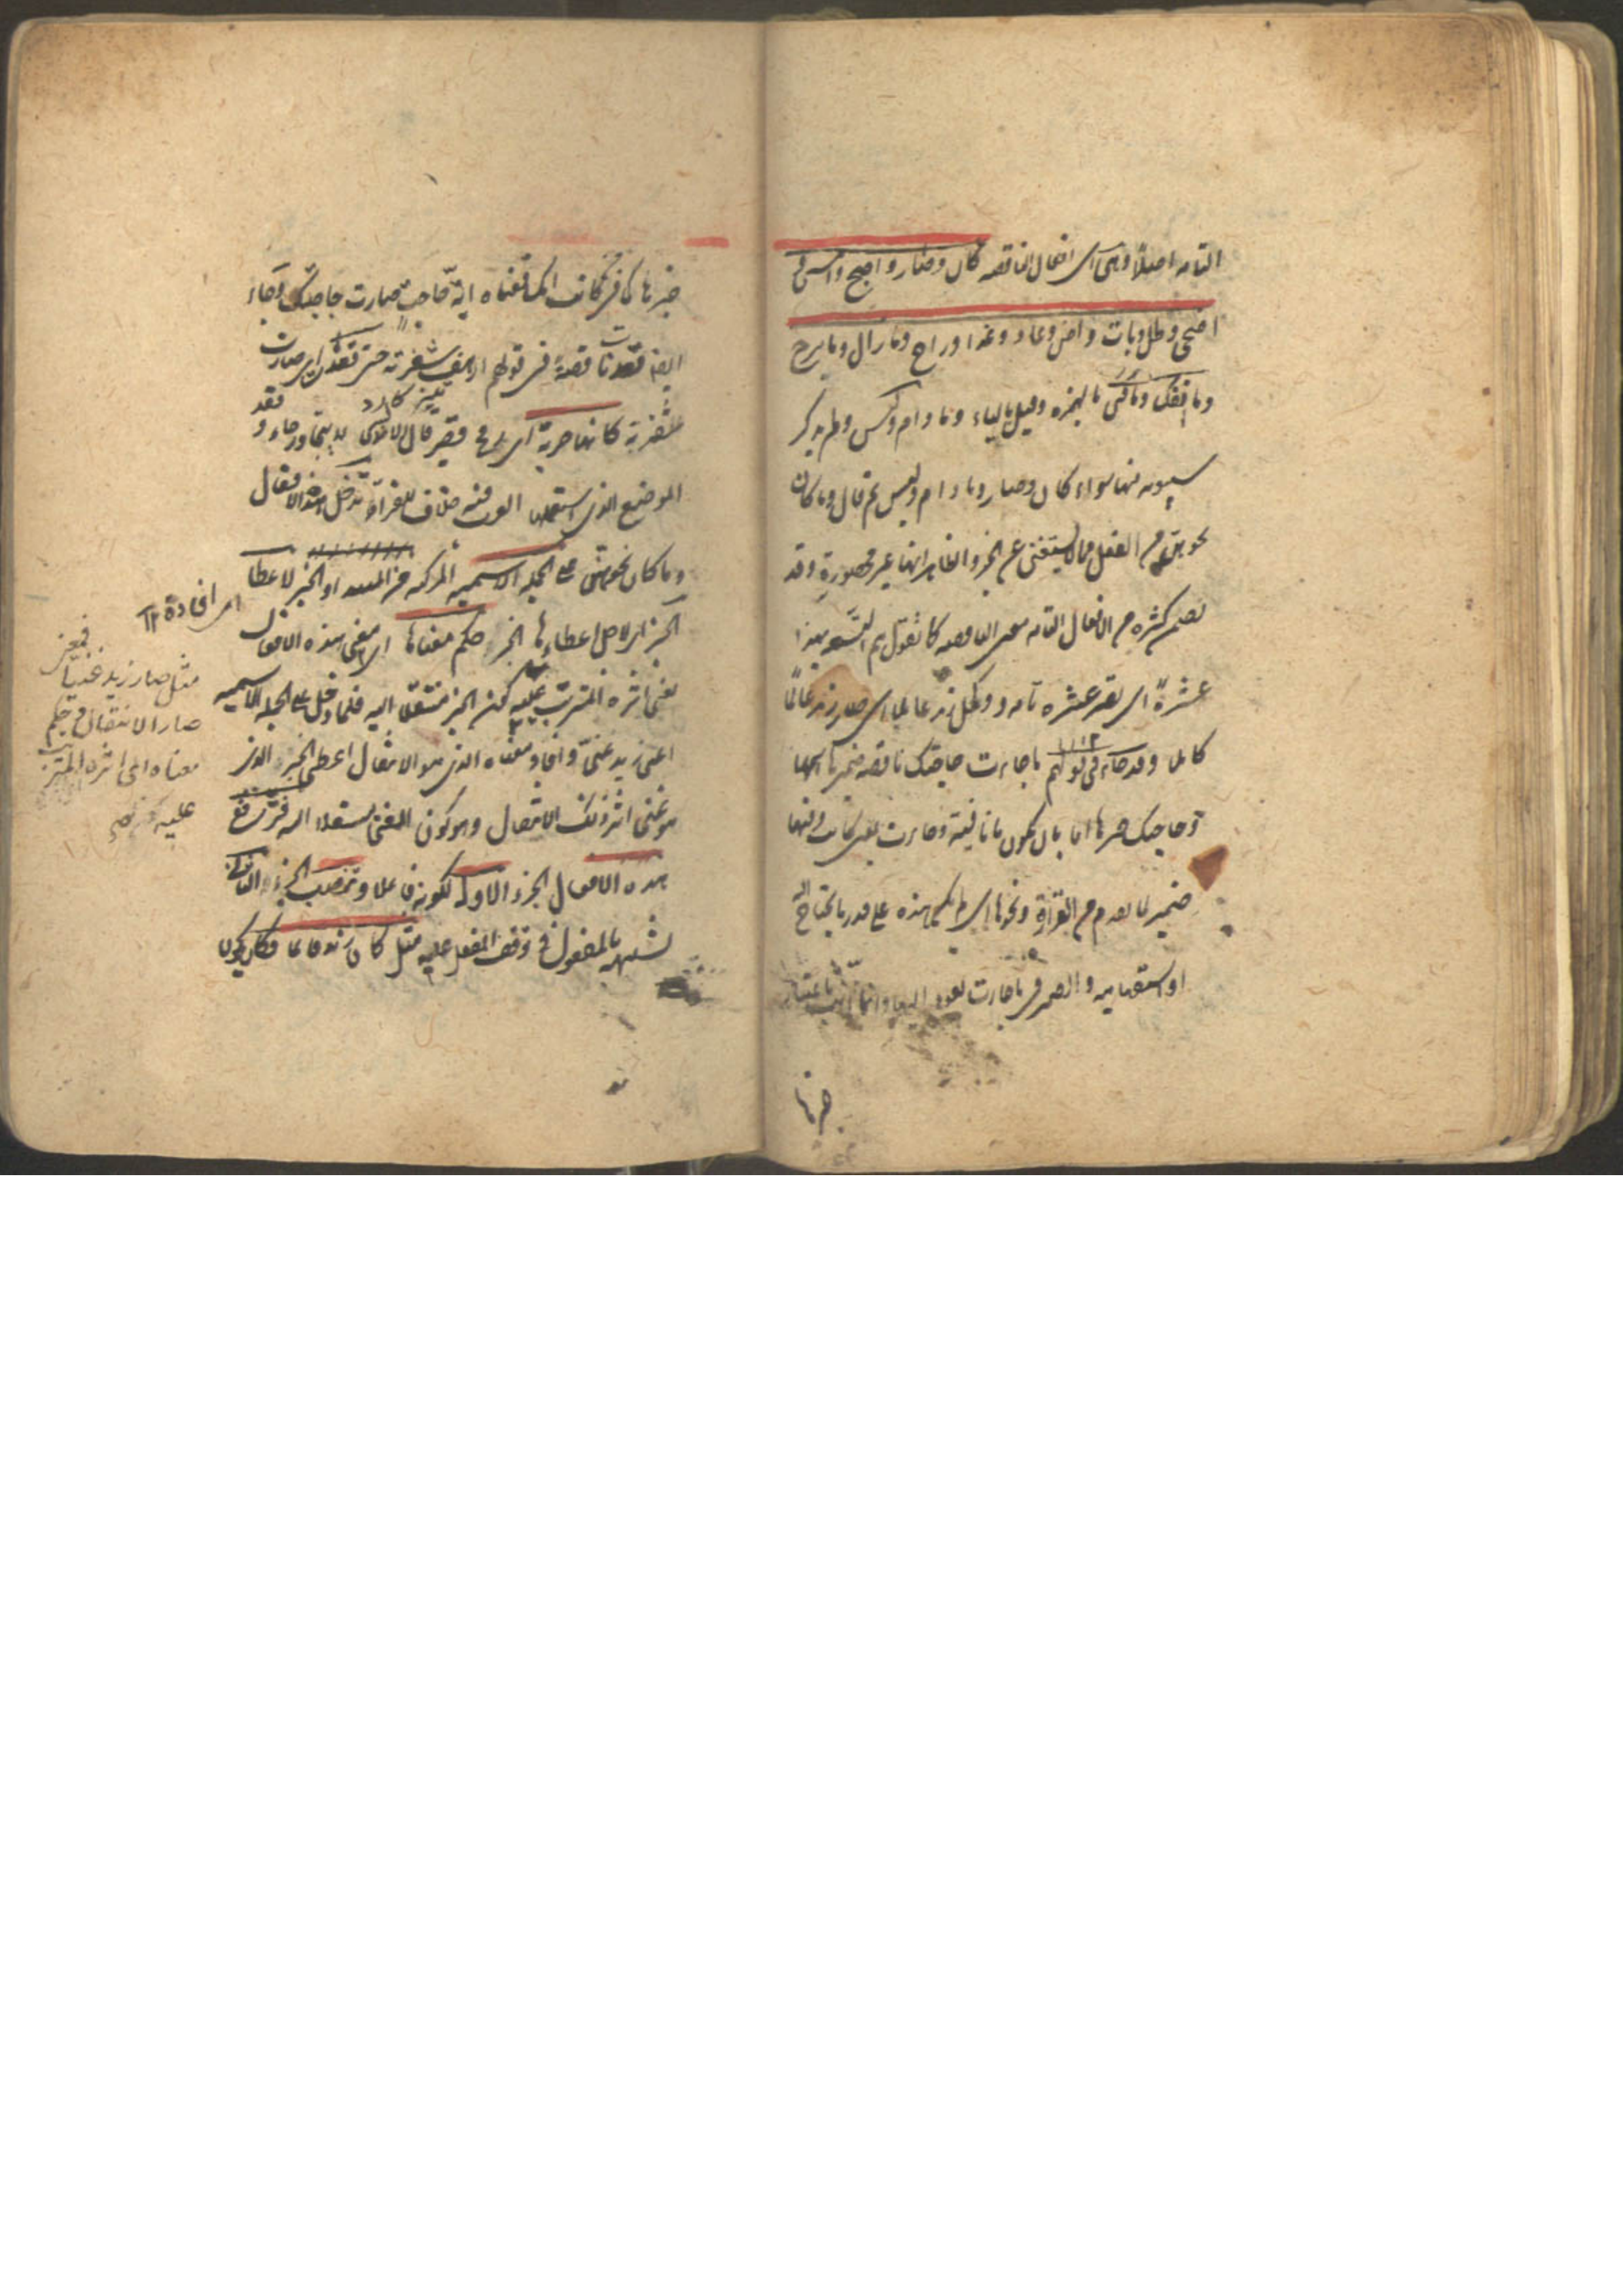 التامه اصلا وهى اى افعال الناقصه كان وصار واصبح وامسى و
اضحى وظل وبات وآض وعاد وغدا وراح وما زال وما برح
وما انفك وما فتئ بالهمزه وقيل بالياء وما دام وليس ولم يذكر
سيبويه منها سواء كان وصار وما دام وليس ثم قال وما كان
نحوهن من الفعل مما لا يستغنى عن الخبر والظاهر انها غير محصورة وقد
تضمن كثير من الافعال التامه معنى الناقصه كما تقول تم التسعه بهذا
عشرة اى تصير عشره تامه وكمل زيد عالما اى صار زيد عالما
كاملا وقد جاء فى قولهم ما جاءت حاجتك ناقصه ضميرها اسمها
وحاجتك خبرها اما بان يكون ما نافية وجاءت بمعنى كانت وفيها
ضمير لما تقدم من الغرارة ونحوها اى لم يكن هذه على قدر ما يحتاج اليه
او استفهاميه والضمير فى جاءت يعود اليها وانما انث باعتبار
خبرها
خبرها كما فى من كانت امك فمعناه اية حاجة صارت حاجتك وجاء
ايضا قعدت ناقصة فى قولهم ارهف شفرته حتى قعدت اى صارت
شفرته كانها حربة اى رمح قصير قال الاندلسى لا يتجاوز جاء وقعد
الموضع الذى استعملها العرب فيه خلاف للفراء تدخل هذه الافعال
وما كان نحوهن على الجمله الاسميه المركبه من المبتدا والخبر لاعطاء
الخبر اى لاجل اعطائها الخبر حكم معناها اى معنى هذه الافعال
يعنى اثره المترتب عليه ككون الخبر منتقلا اليه فلما دخل على الجمله الاسميه
اعنى زيد غنى وافاد معناه الذى هو الانتقال اعطى الخبر الذى
هو غنى اثر ذلك الانتقال وهو كون الغنى منتقلا اليه فترفع
هذه الافعال الجزء الاول لكونه فاعلا وتنصب الجزء الثانى
لشبهه بالمفعول فى توقف الفعل عليه مثل كان زيد قائما فكان يكون
اى افادة ١٢
فمعنى
مثل صار زيد غنيا
صار الانتقال فى حكم
معناه اى اثره المترتب
عليه